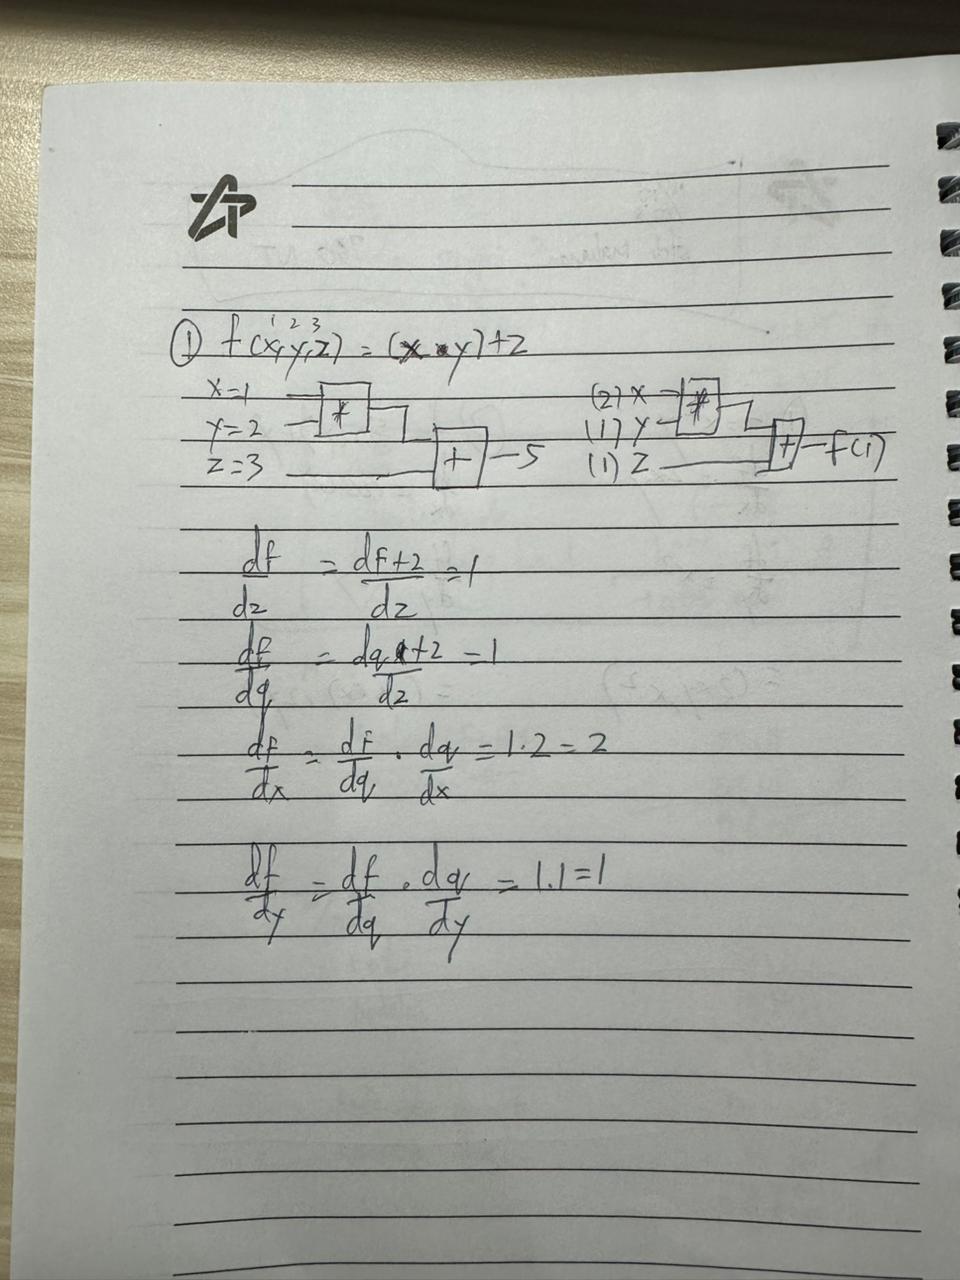 ① f(x,y,z) = (x·y)+z
1 2 3
x=1 * (2) x *
y=2 (1) y
z=3 + 5 (1) z + f(1)
df/dz = df+z/dz = 1
df/dq = dq+z/dz = 1
df/dx = df/dq · dq/dx = 1·2 = 2
df/dy = df/dq · dq/dy = 1·1 = 1